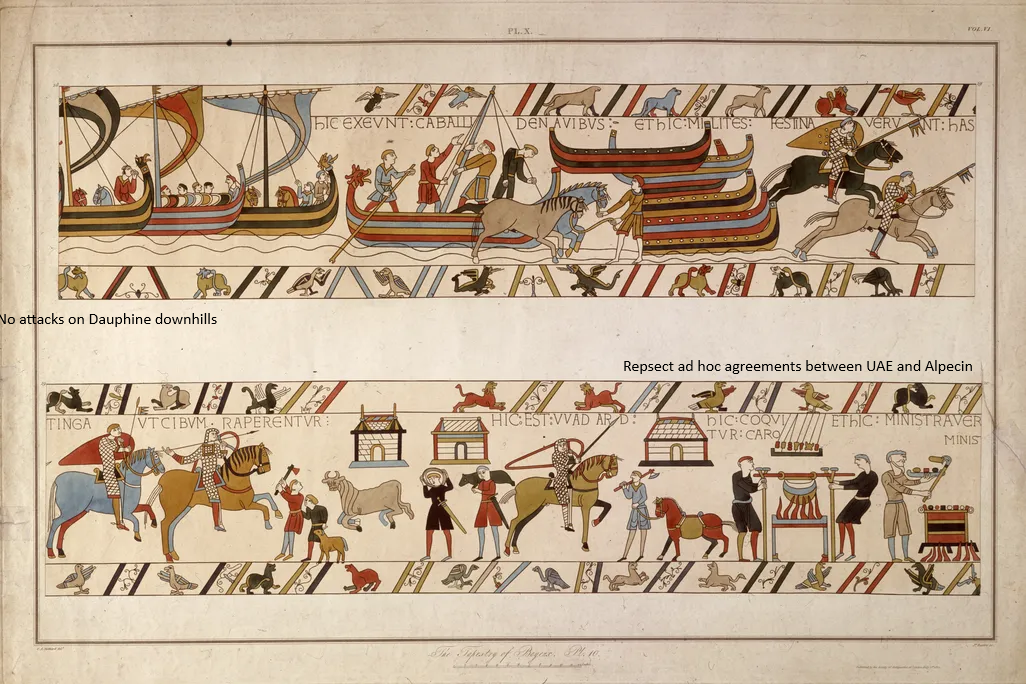 PL. X.
VOL. VI.
hIC EXEVNT: CABALLI DENAVIBVS:- ET hIC: MILITES: FESTINA VERV NT: hAS
No attacks on Dauphine downhills
Repsect ad hoc agreements between UAE and Alpecin
TINGA VT CIBVM · RAPERENTVR: HIC: EST: VVAD ARD: hIC: COQVI ET hIC: MINISTRAVER
TVR: CARO MINIS
The Tapestry of Bayeux. Pl. 10.